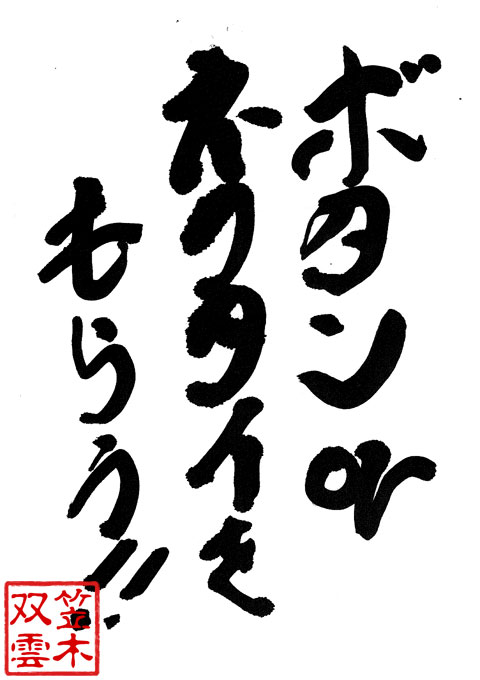 ボタンor
ネクタイを
もらう!!
笠木
双雲